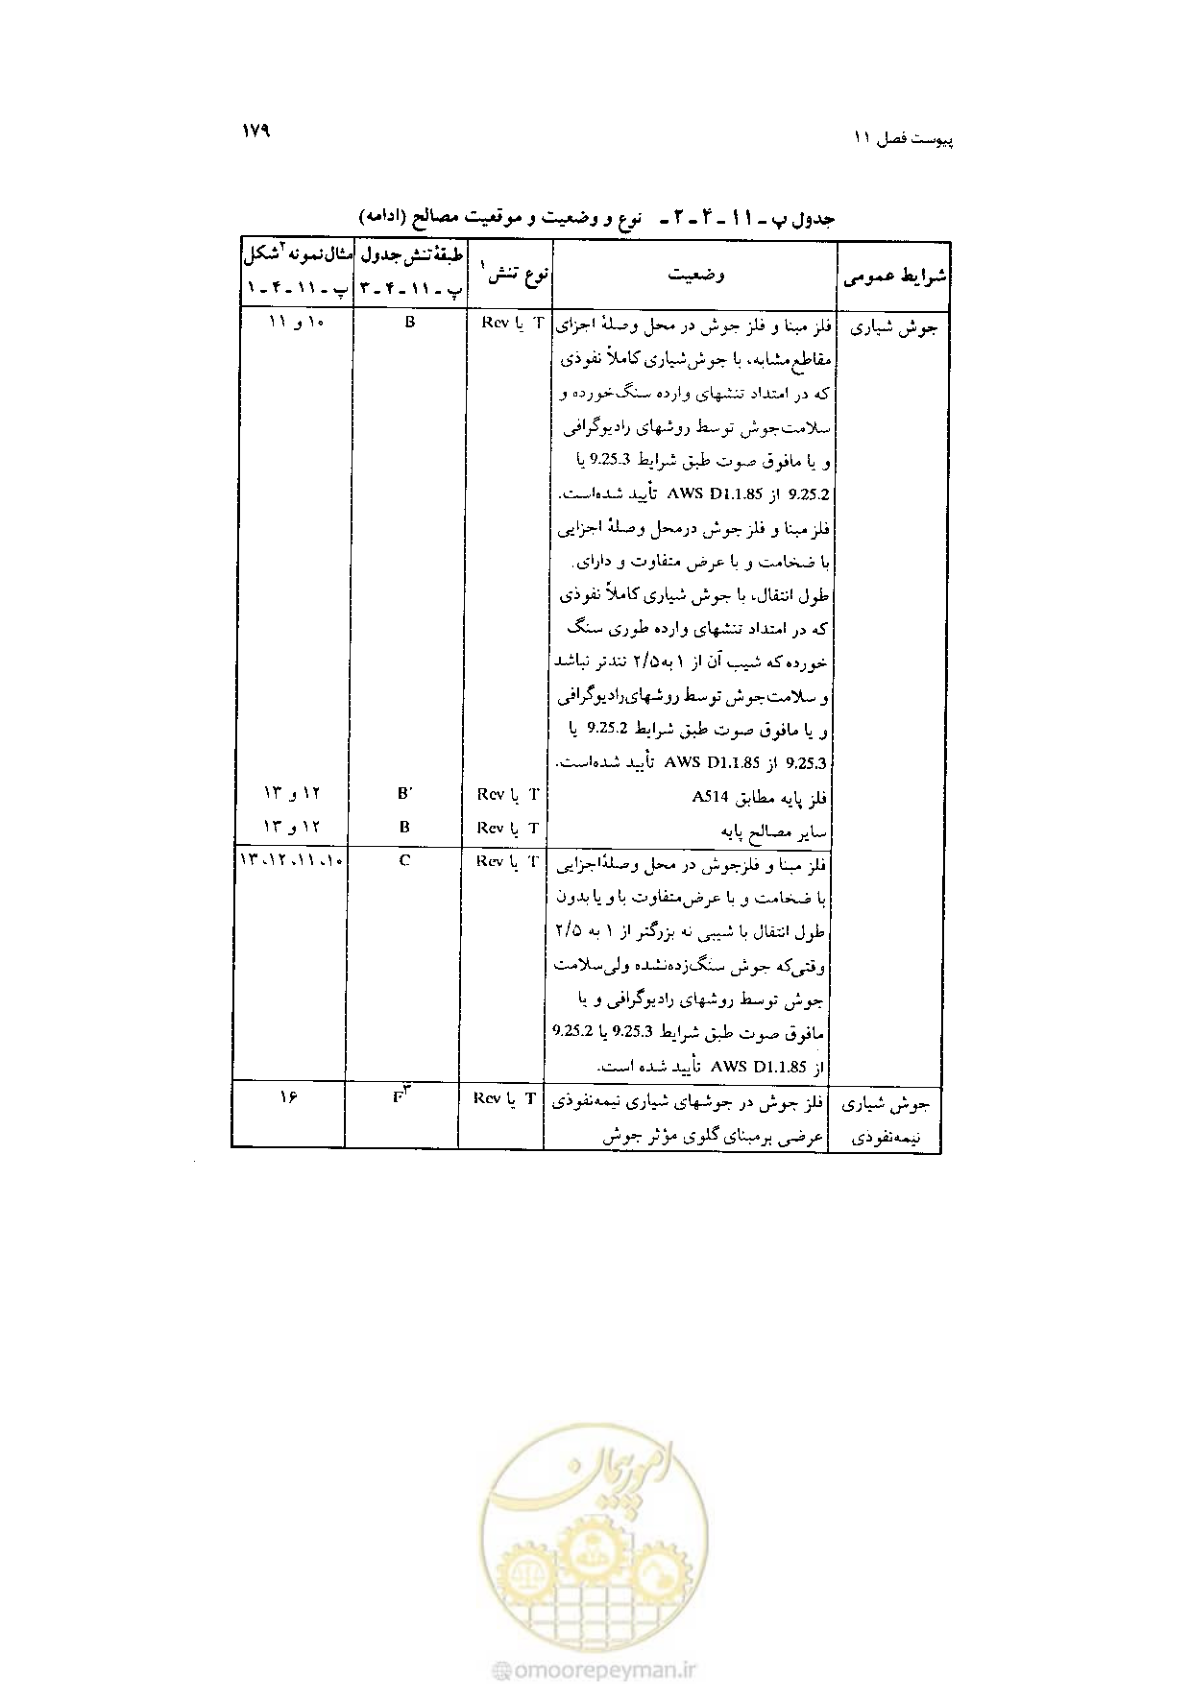 پیوست فصل ۱۱
۱۷۹
جدول پ ـ ۱۱ ـ ۴ ـ ۲ ـ نوع و وضعیت و موقعیت مصالح (ادامه)
شرایط عمومی
وضعیت
نوع تنش۱
طبقهٔ تنش جدول
پ ـ ۱۱ ـ ۴ ـ ۳
مثال نمونه۲ شکل
پ ـ ۱۱ ـ ۴ ـ ۱
جوش شیاری
فلز مبنا و فلز جوش در محل وصلهٔ اجزای
T یا Rev
B
۱۰ و ۱۱
مقاطع مشابه، با جوش شیاری کاملاً نفوذی
که در امتداد تنشهای وارده سنگ خورده و
سلامت جوش توسط روشهای رادیوگرافی
و یا مافوق صوت طبق شرایط 9.25.3 یا
9.25.2 از AWS D1.1.85 تأیید شده‌است.
فلز مبنا و فلز جوش درمحل وصلهٔ اجزایی
با ضخامت و یا عرض متفاوت و دارای
طول انتقال، با جوش شیاری کاملاً نفوذی
که در امتداد تنشهای وارده طوری سنگ
خورده که شیب آن از ۱ به ۲/۵ تندتر نباشد
و سلامت جوش توسط روشهای رادیوگرافی
و یا مافوق صوت طبق شرایط 9.25.2 یا
9.25.3 از AWS D1.1.85 تأیید شده‌است.
فلز پایه مطابق A514
T یا Rev
B'
۱۲ و ۱۳
سایر مصالح پایه
T یا Rev
B
۱۲ و ۱۳
فلز مبنا و فلزجوش در محل وصلهٔ اجزایی
T یا Rev
C
۱۰، ۱۱، ۱۲، ۱۳
با ضخامت و یا عرض متفاوت با و یا بدون
طول انتقال با شیبی نه بزرگتر از ۱ به ۲/۵
وقتی‌که جوش سنگ‌زده‌نشده ولی سلامت
جوش توسط روشهای رادیوگرافی و یا
مافوق صوت طبق شرایط 9.25.3 یا 9.25.2
از AWS D1.1.85 تأیید شده است.
جوش شیاری
نیمه‌نفوذی
فلز جوش در جوشهای شیاری نیمه‌نفوذی
عرضی برمبنای گلوی مؤثر جوش
T یا Rev
F۳
۱۶
امور پیمان
@omoorepeyman.ir